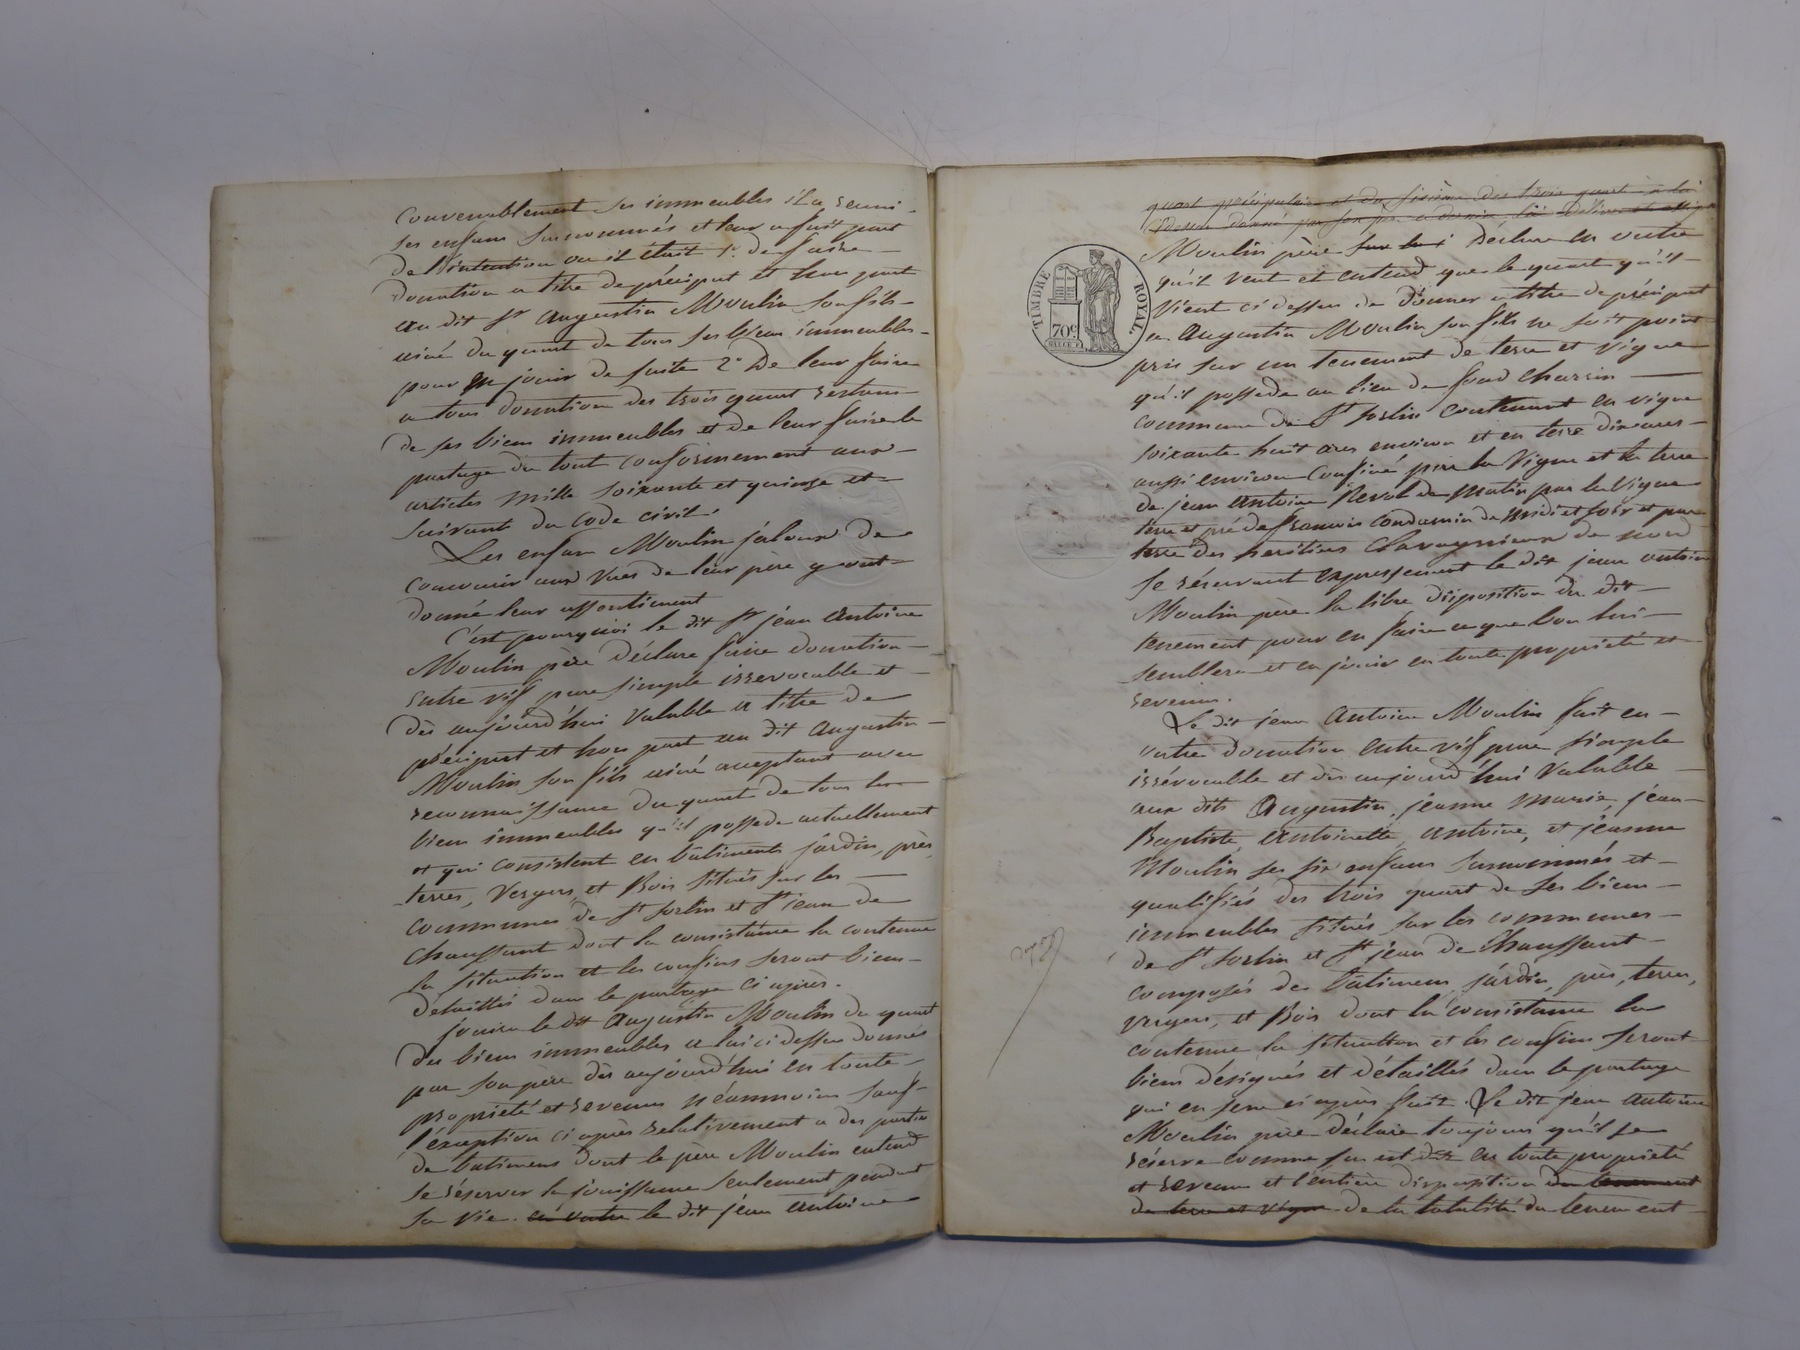 convenablement ses immeubles il a reuni
ses enfans surnommés et leur a fait part
de l'intention ou il était 1° de faire
donation a titre de préciput et hors part
au dit Sr Augustin Moulin son fils
ainé du quart de tous ses biens immeubles
pour en jouir de suite 2° De leur faire
a tous donation des trois quart restans
de ses biens immeubles et de leur faire le
partage du tout conformement aux
articles mille soixante et quinze et
suivants du Code civil.
Les enfans Moulin jaloux de
concourir aux vues de leur père y ont
donné leur assentiment
C'est pourquoi le dit Sr jean Antoine
Moulin père déclare faire donation
entre vifs pure simple irrevocable et
dès aujourd'hui valable a titre de
préciput et hors part au dit Augustin
Moulin son fils ainé acceptant avec
reconnaissance du quart de tous les
biens immeubles qu'il possede actuellement
et qui consistent en batiments jardin, près,
terres, Vergers, et Bois situés sur les
communes de St Sorlin et St jean de
Chaussant dont la consistance la contenue
la situation et les confins seront bien
détaillés dans le partage ci après.
jouira le dit Augustin Moulin du quart
des biens immeubles a lui ci dessus donnés
par son père dès aujourd'hui en toute
propriété et revenus néammoins sauf
l'éxception ci après relativement a des parties
de batimens dont le père Moulin entend
se réserver la jouissance seulement pendant
sa vie. en outre le dit jean Antoine
quart préciputaire et du sixième des trois quart a lui
ci dessus donné par son père a dernier lui délivre et assigne
Moulin père sur lui déclare en outre
qu'il veut et entend que le quart qu'il
vient ci dessus de donner a titre de préciput
a Augustin Moulin son fils ne soit point
pris sur un tenement de terre et vigne
qu'il possede au lieu de fond Charrin
commune de St Sorlin contenant en vigne
soixante huit ares environ et en terre dix ares
aussi environ confiné pour la Vigne et la terre
de jean Antoine Revol de matin par la Vigne
terre et pré de francois Condamin de midi et soir et par
terre des heritiers Chavagnieux de nord
se réservant expressement le dit jean antoine
Moulin père la libre disposition du dit
tenement pour en faire ce que bon lui
semblera et en jouir en toute propriété et
revenus.
Le dit jean Antoine Moulin fait en
outre donation entre vifs pure simple
irrévocable et dès aujourd'hui valable
aux dits Augustin, jeanne marie, jean
Baptiste, Antoinette, antoine, et jeanne
Moulin ses six enfans surnommés et
qualifiés des trois quart de ses biens
immeubles situés sur les communes
de St Sorlin et St jean de Chaussant
composés de batimens, jardin, près, terres,
vergers, et Bois dont la consistance la
contenue la situation et les confins seront
biens désignés et détaillés dans le partage
qui en sera ci après fait. Le dit jean Antoine
Moulin père déclare toujours qu'il se
réserve comme sus est dit en toute propriété
et revenus et l'entière disposition du tenement
de terre et vigne de la totalité du tenement
TIMBRE ROYAL
70c